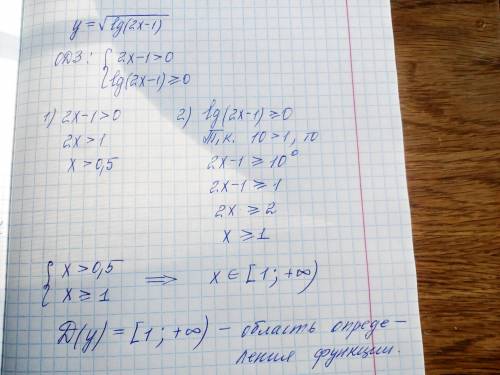 y = √lg(2x-1)
ОДЗ: { 2x-1>0
lg(2x-1)≥0
1) 2x-1>0
2x>1
x>0,5
2) lg(2x-1)≥0
Т.к. 10>1, то
2x-1≥10⁰
2x-1≥1
2x≥2
x≥1
{ x>0,5
x≥1
⟹ x∈[1; +∞)
D(y) = [1; +∞) – область опреде-
ления функции.